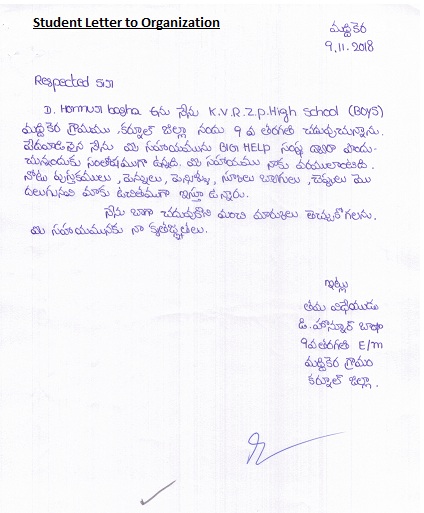 Student Letter to Organization
మద్దికెర
9.11.2018
Respected sir
D. Honnur basha అను నేను K.V.R.Z.P.High School (BOYS)
మద్దికెర గ్రామము, కర్నూల్ జిల్లా నందు 9 వ తరగతి చదువుచున్నాను.
పేదవాడినైన నేను మీ సహాయమును GIGI HELP సంస్థ ద్వారా పొందు
చున్నందుకు సంతోషముగా ఉన్నది. మీ సహాయము నాకు వరములాంటిది.
నోటు పుస్తకములు, పెన్నులు, పెన్సిళ్ళు, స్కూలు బ్యాగులు, చెప్పులు మొ
దలుగునవి మాకు ఉచితముగా ఇస్తూ ఉన్నారు.
నేను బాగా చదువుకొని మంచి మార్కులు తెచ్చుకోగలను.
మీ సహాయమునకు నా కృతజ్ఞతలు.
ఇట్లు
తమ విధేయుడు
డి. హొన్నూర్ బాషా
9వ తరగతి E/m
మద్దికెర గ్రామం
కర్నూల్ జిల్లా.